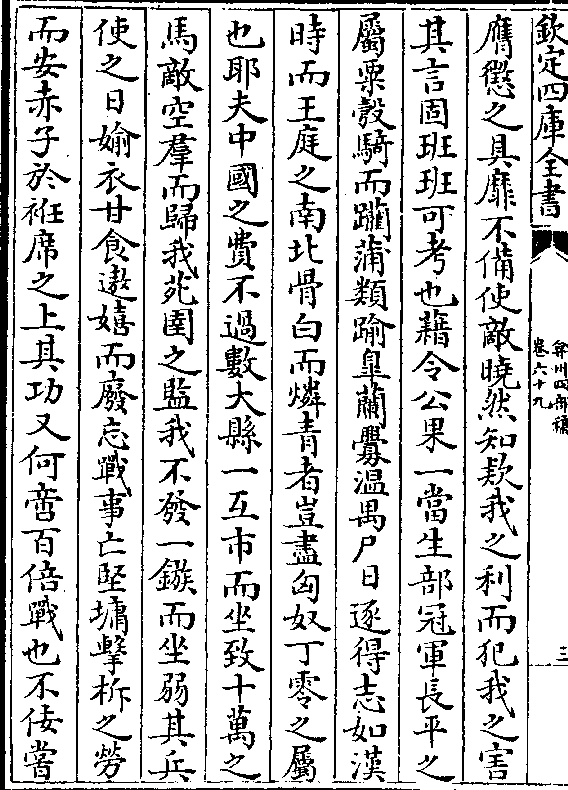 欽定四庫全書
弇州四部稿
卷六十九
三
膺懲之具靡不備使敵曉然知款我之利而犯我之害
其言固班班可考也藉令公果一當生部冠軍長平之
屬粟彀騎而躪蒲類踰臯蘭釁温禺尸日逐得志如漢
時而王庭之南北骨白而燐青者豈盡匈奴丁零之屬
也耶夫中國之費不過數大縣一互市而坐致十萬之
馬敵空羣而歸我苑圉之監我不發一鏃而坐弱其兵
使之日媮衣甘食遨嬉而廢忘戰事亡堅墉擊柝之勞
而安赤子於袵席之上其功又何啻百倍戰也不佞嘗